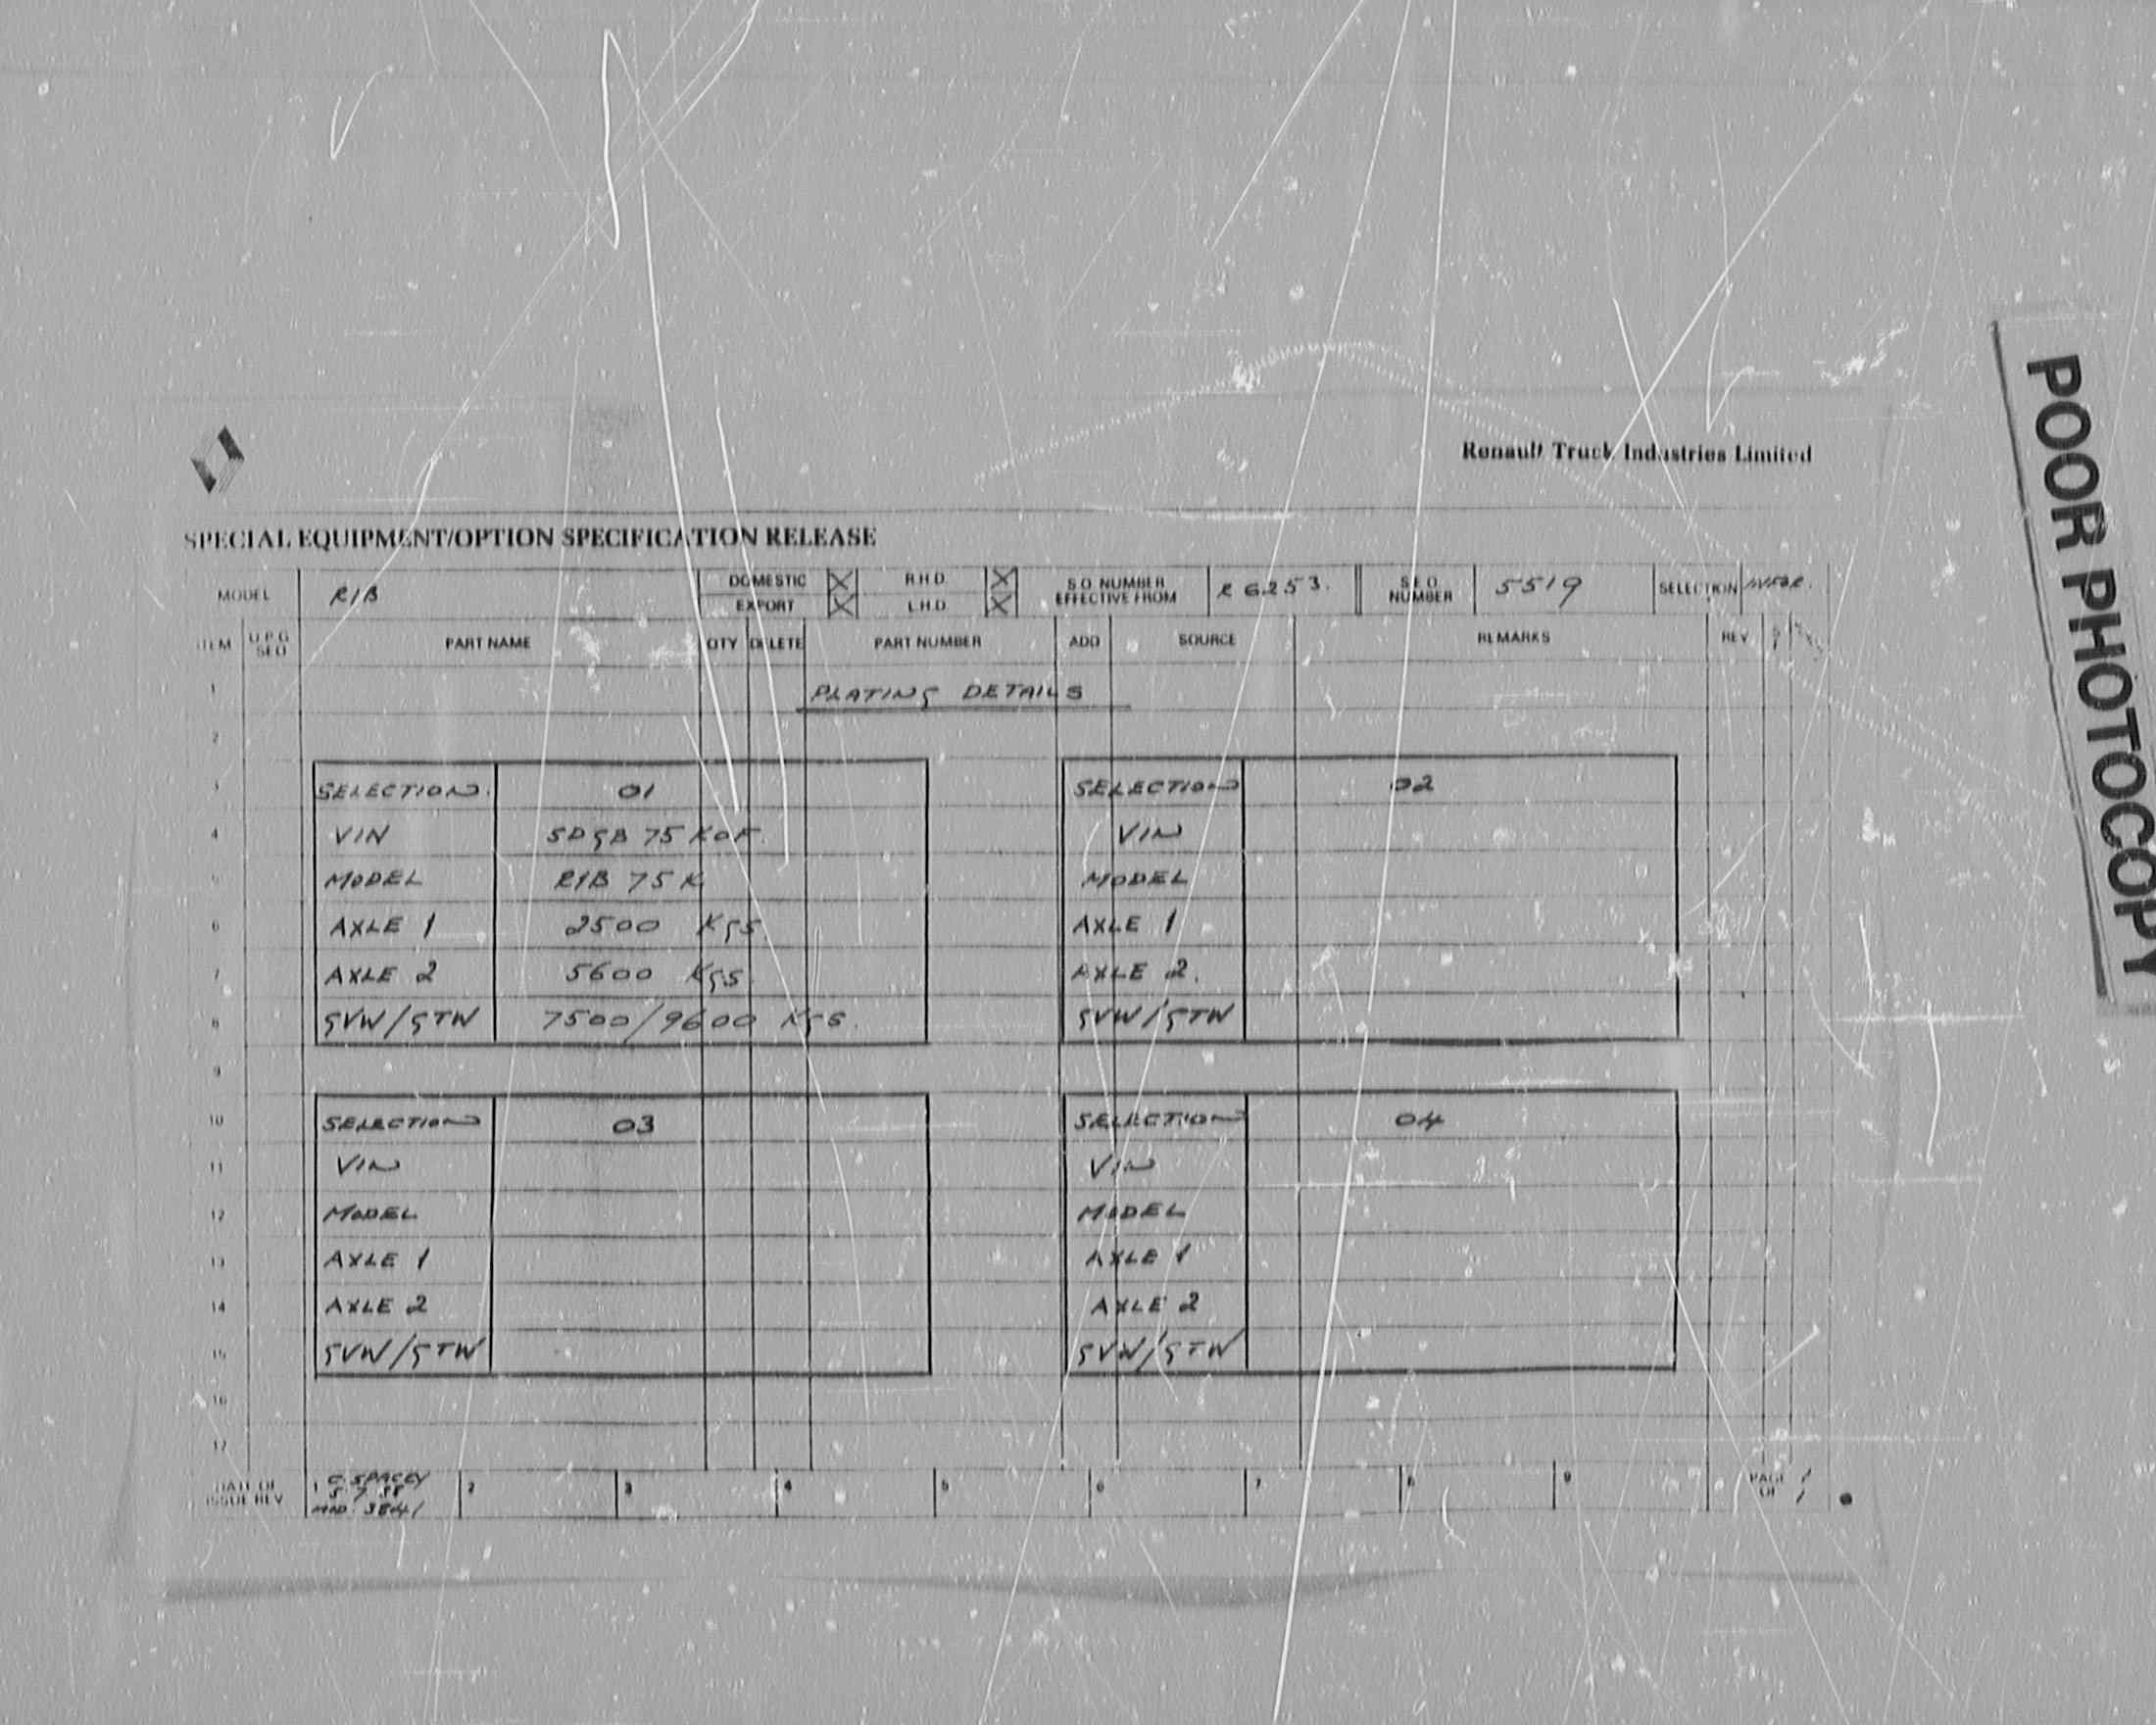 Renault Truck Industries Limited
SPECIAL EQUIPMENT/OPTION SPECIFICATION RELEASE
MODEL R1B DOMESTIC X R.H.D. X S.O. NUMBER EFFECTIVE FROM R 6253. S.E.O. NUMBER 5519 SELECTION
EXPORT X L.H.D. X
ITEM U.P.G SEQ PART NAME QTY DELETE PART NUMBER ADD SOURCE REMARKS REV
1 PLATING DETAILS
2
3 SELECTION. 01 SELECTION 02
4 VIN 5DGB 75 KOF. VIN
5 MODEL R1B 75 K MODEL
6 AXLE 1 2500 KGS AXLE 1
7 AXLE 2 5600 KGS. AXLE 2.
8 GVW/GTW 7500/9600 KGS. GVW/GTW
9
10 SELECTION 03 SELECTION 04
11 VIN VIN
12 MODEL MODEL
13 AXLE 1 AXLE 1
14 AXLE 2 AXLE 2
15 GVW/GTW GVW/GTW
16
17
DATE OF ISSUE REV 1 C. SPACEY 2 3 4 5 6 7 8 9 PAGE 1 OF 1
5.7.88
MOD. 3841
POOR PHOTOCOPY